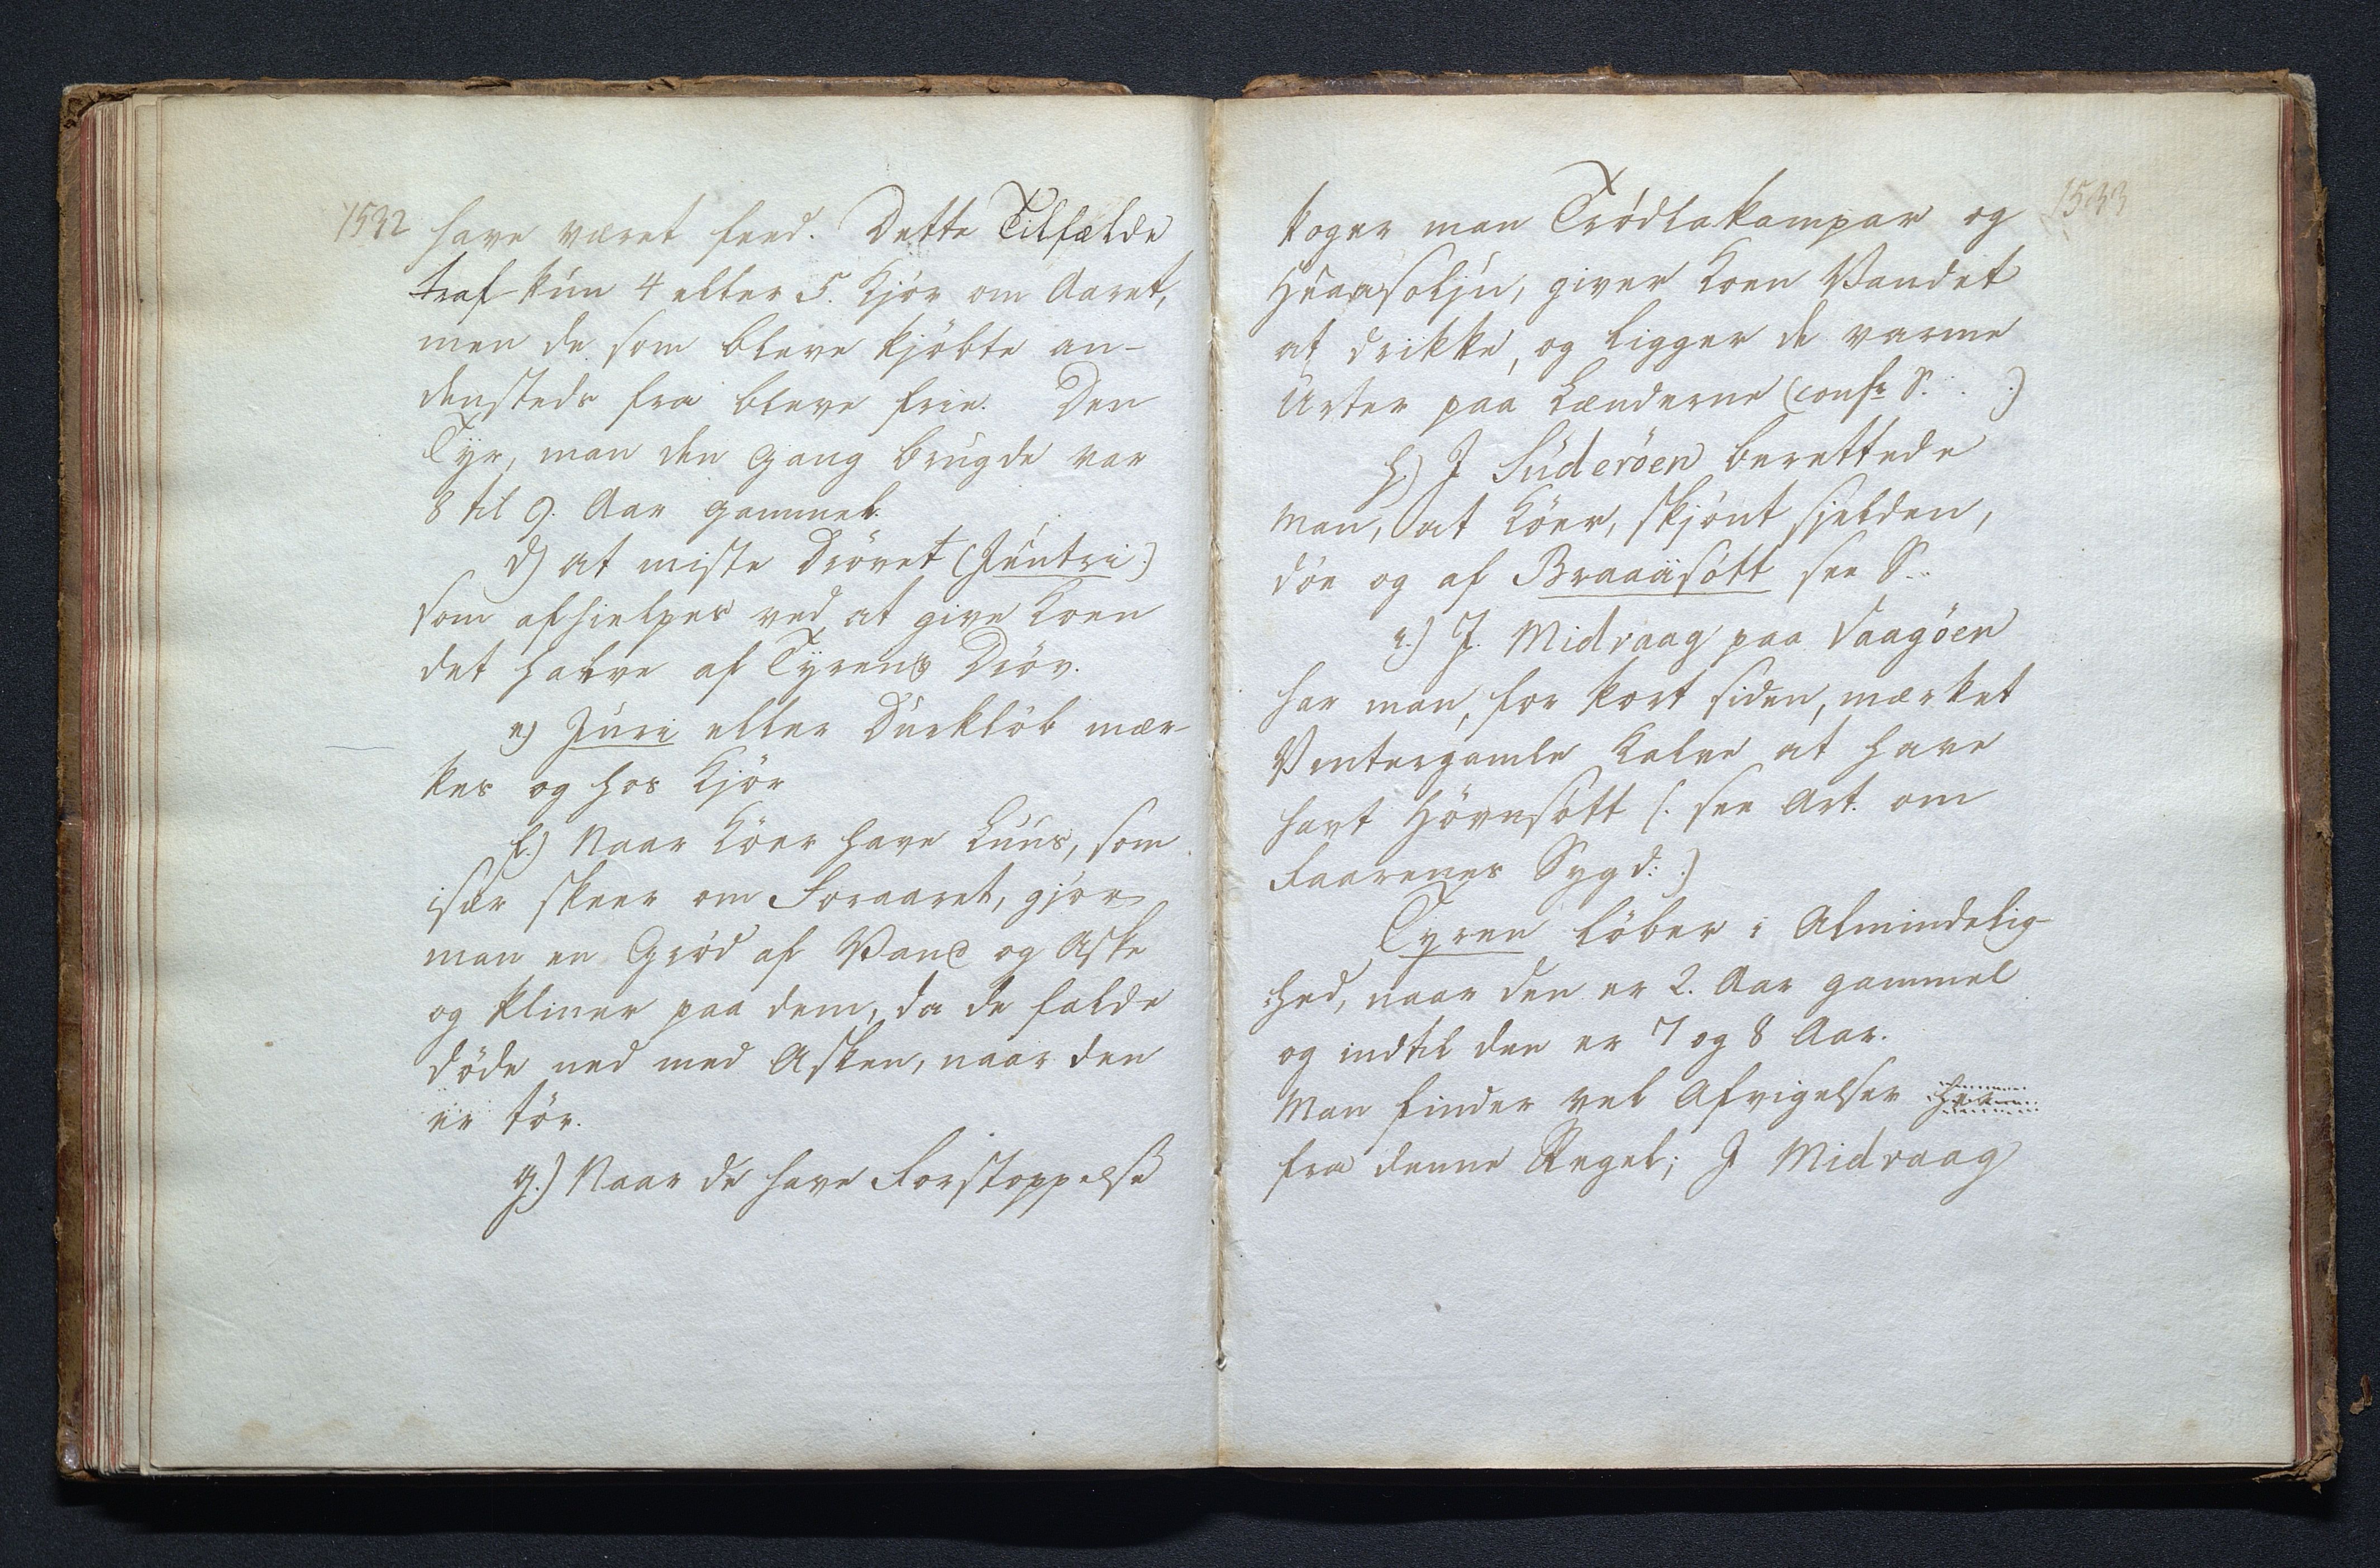 1532
have været feed. Dette Tilfælde
traf kun 4 eller 5. Kjör om Aaret,
men de som bleve kjöbte an-
densteds fra bleve frie. Den
Tyr, man den Gang brugde var
8 til 9. Aar gammel.
d) at miste Dröwet (Juntri.)
som afhielpes ved at give Koen
det halve af Tyrens Dröv.
e) Juri eller Durklöb mær-
kes og hos Kjör
f.) Naar Köer have Luus, som
især skeer om Foraaret, gjör
man en Gröd af Vand og Aske
og kliner paa dem, da de falde
döde ned med Asken, naar den
er tör.
g.) Naar de have Forstoppelse
1533
koger man Trödlakampar og
giver Koen Vandet
at drikke, og ligger de varme
Urter paa Lænderne (confr S. . .)
h.) J Suderöen berettede
man, at Köer, skjönt sjelden,
döe og af Braaäsótt see S..
i.) J. Midvaag paa Vaagöen
har man, for kort siden, mærket
Vintergamle Kalve at have
havt Hövusótt (. see Art. om
Faarenes Sygd: .)
Tyren löber i Almindelig-
hed, naar den er 2. Aar gammel
og indtil den er 7 og 8 Aar.
Man finder vel Afvigelser
fra denne Regel; J Midvaag